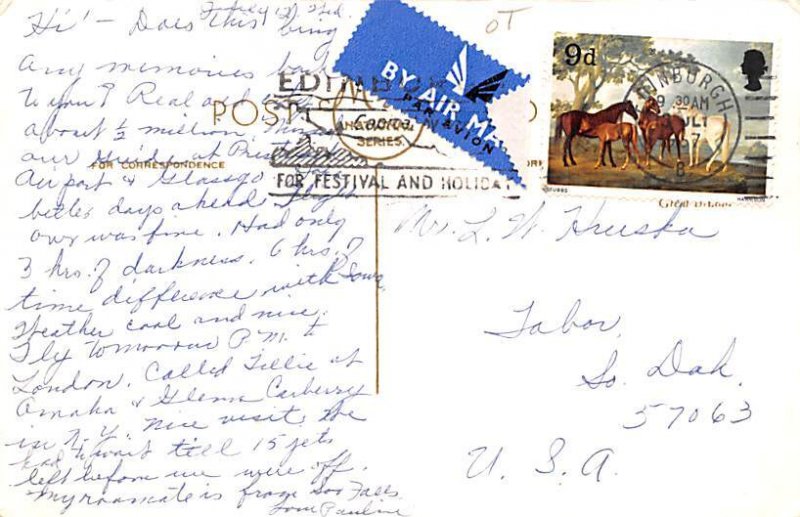 Hi! - Does this bring
any memories back
to you? Real
about ½ million.
our
Airport & Glasgo
better days ahead. Flight
over was fine. Had only
3 hrs. of darkness. 6 hrs. of
time difference with Iowa.
Weather cool and nice.
Fly tomorrow P.M. to
London. Called Tillie at
Omaha & Glenn Carberry
in N.Y. Nice visit. We
had to wait till 15 jets
left before we were off.
My roommate is from Soo Falls.
Love Pauline
POST
FOR CORRESPONDENCE
SERIES.
BY AIR MAIL
PAR AVION
FOR FESTIVAL AND HOLIDAY
9d
EDINBURGH
9 30 AM
STUBBS
HARRISON
Great Britain
Mr. L. W. Hruska
Tabor,
So. Dak.
57063
U. S. A.